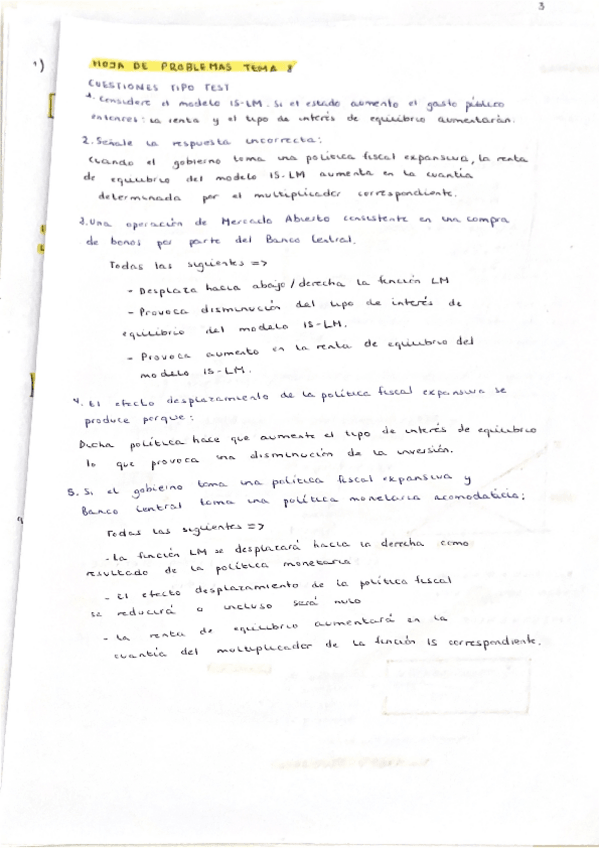 3
1)
HOJA DE PROBLEMAS TEMA 8
CUESTIONES TIPO TEST
1. Considere el modelo IS-LM. Si el estado aumenta el gasto público
entonces: la renta y el tipo de interés de equilibrio aumentarán.
2. Señale la respuesta incorrecta:
Cuando el gobierno toma una política fiscal expansiva, la renta
de equilibrio del modelo IS-LM aumenta en la cuantía
determinada por el multiplicador correspondiente.
3. Una operación de Mercado Abierto consistente en una compra
de bonos por parte del Banco Central.
Todas las siguientes =>
- Desplaza hacia abajo/derecha la función LM
- Provoca disminución del tipo de interés de
equilibrio del modelo IS-LM.
- Provoca aumento en la renta de equilibrio del
modelo IS-LM.
4. El efecto desplazamiento de la política fiscal expansiva se
produce porque:
Dicha política hace que aumente el tipo de interés de equilibrio
lo que provoca una disminución de la inversión.
5. Si el gobierno toma una política fiscal expansiva y
Banco Central toma una política monetaria acomodaticia:
Todas las siguientes =>
- La función LM se desplazará hacia la derecha como
resultado de la política monetaria
- El efecto desplazamiento de la política fiscal
se reducirá o incluso será nulo
- La renta de equilibrio aumentará en la
cuantía del multiplicador de la función IS correspondiente.